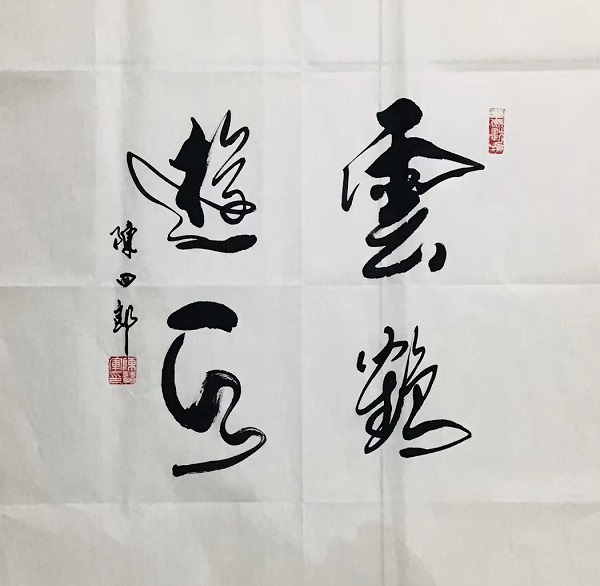 雲鶴
遊天
陳四郎